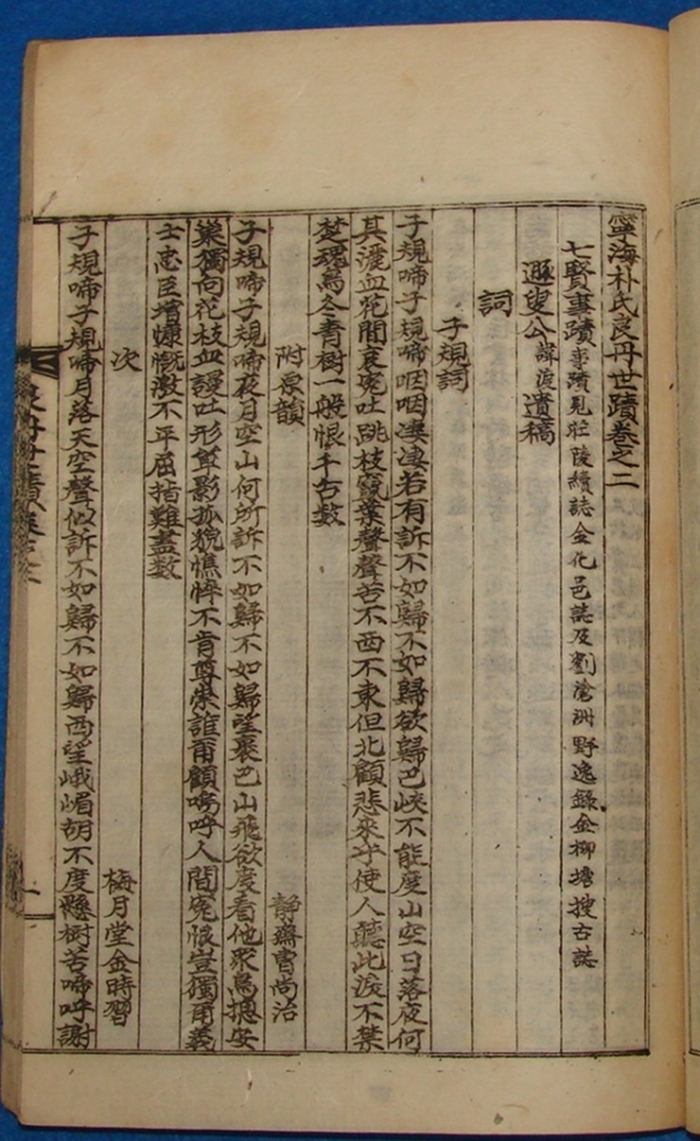 寧海朴氏良丹世蹟卷之二
七賢事蹟事蹟見莊陵續誌金化邑誌及劉滄洲野逸錄金柳塘搜古誌
遯叟公諱渡遺稿
詞
子規詞
子規啼子規啼咽咽凄凄若有訴不如歸不如歸欲歸巴峽不能度山空日落夜何
其灑血花間哀冤吐跳枝竄葉聲聲苦不西不東但北顧悲來乎使人聽此淚不禁
楚魂爲冬青樹一般恨千古数
附原韻
靜齋曺尚治
子規啼子規啼夜月空山何所訴不如歸不如歸望裏巴山飛欲度看他衆鳥摠安
巢獨向花枝血謾吐形單影孤貌憔悴不肯尊崇誰甭顧嗚呼人間冤恨豈獨甭義
士忠臣增慷慨激不平屈指難盡数
次
梅月堂金時習
子規啼子規啼月落天空聲似訴不如歸不如歸西望峨嵋胡不度懸樹苦啼呼謝
一